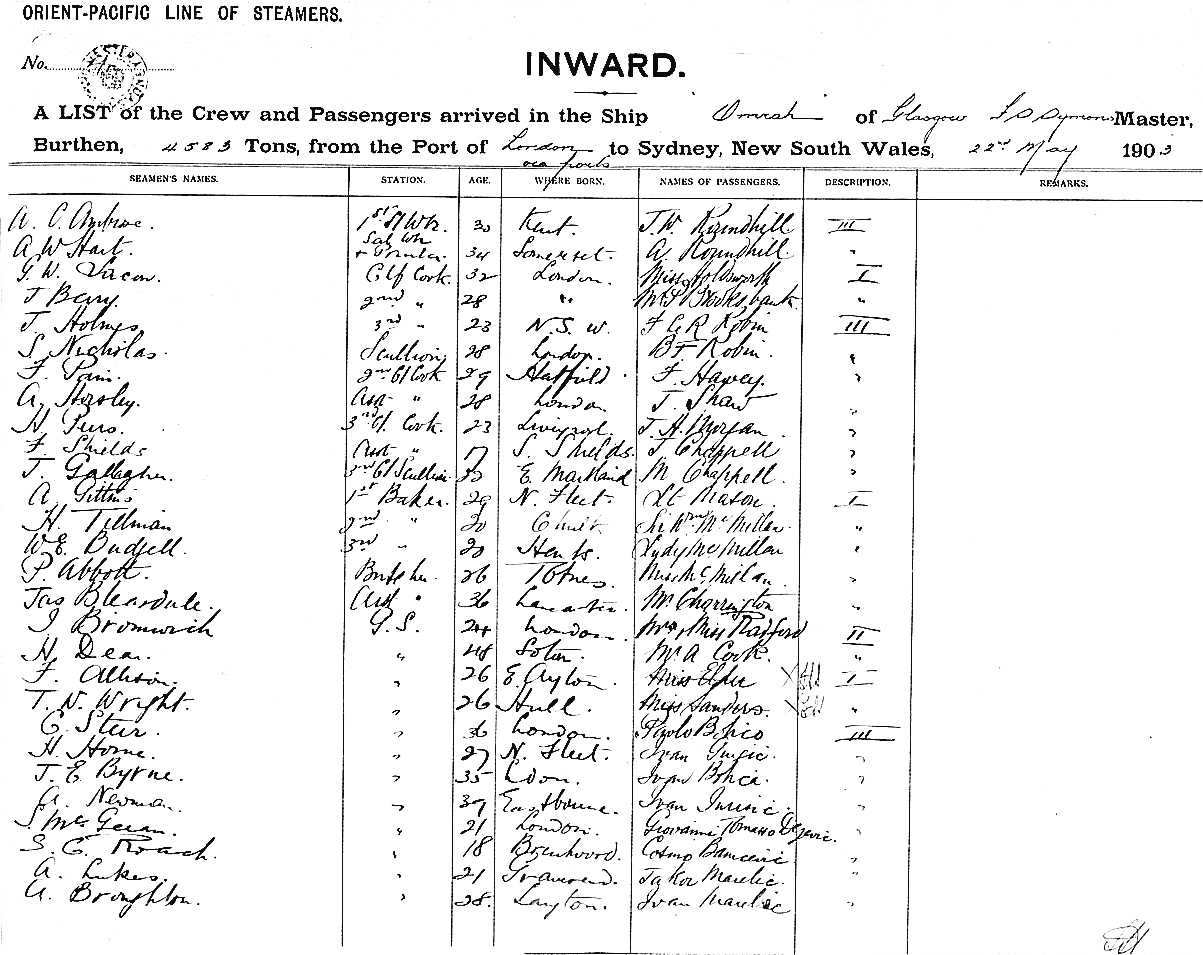 ORIENT-PACIFIC LINE OF STEAMERS.
No.
INWARD.
A LIST of the Crew and Passengers arrived in the Ship Omrah of Glasgow Master,
Burthen, 4583 Tons, from the Port of London to Sydney, New South Wales, 22nd May 1903
via ports
SEAMEN'S NAMES. STATION. AGE. WHERE BORN. NAMES OF PASSENGERS. DESCRIPTION. REMARKS.
A. C. Ambrose. 30 Kent. J. W. Roundhill III
A W Hart. 34 Somerset. A. Roundhill "
G. W. Cook. 32 London. Miss Holdsworth I
T Bary. 2nd " 28 " Brooksbank "
T. Holmes 3rd " 23 N. S. W. F Le R Robin III
S. Nicholas. Scullion 28 London. B F Robin. "
F. Pain. 2nd Cl Cook 29 Hatfield. F. Harvey. "
A. Horsley. Asst " 28 London T. Shaw "
H. 3rd Cl. Cook. 23 Liverpool. J. H. Morgan "
F. Shields Asst " 17 S. Shields. J. Chappell "
T. Gallagher. 3rd Cl Scullion E. Maitland M Chappell "
A. Gittins 1st Baker. 29 N. Fleet. Lt Mason. I
H. Tillman 2nd " Sir Wm McMillan "
W. E. Budgell. 3rd " Herts. Lady McMillan "
P. Abbott. Butcher. 26 Totnes. Miss McMillan. "
Jas Bleasdale. Asst " 36 Lancaster. Mr Charrington "
J Bromwich G. S. 24 London. Miss Radford II
H. Dean. " 48 Soton. Mr A Cook. "
F. Allison. " 26 E. Ayton. Miss Elder I
T. N. Wright. " 26 Hull. Miss Sanders. "
C. Steir. " 36 London. Paolo III
H. Horne. " 27 N. Fleet. Ivan "
T. E. Byrne. " 35 Ldon. Ivan "
A. Newman. " 39 Eastbourne. Ivan Jurisic. "
S. " 21 London. Giovanni Tomasso "
S. C. Roach. " 18 Brentwood. Cosmo "
A. Lukes. " 21 Gravesend. Marelic. "
A. Broughton. " 28. Langton. Ivan Marelic "